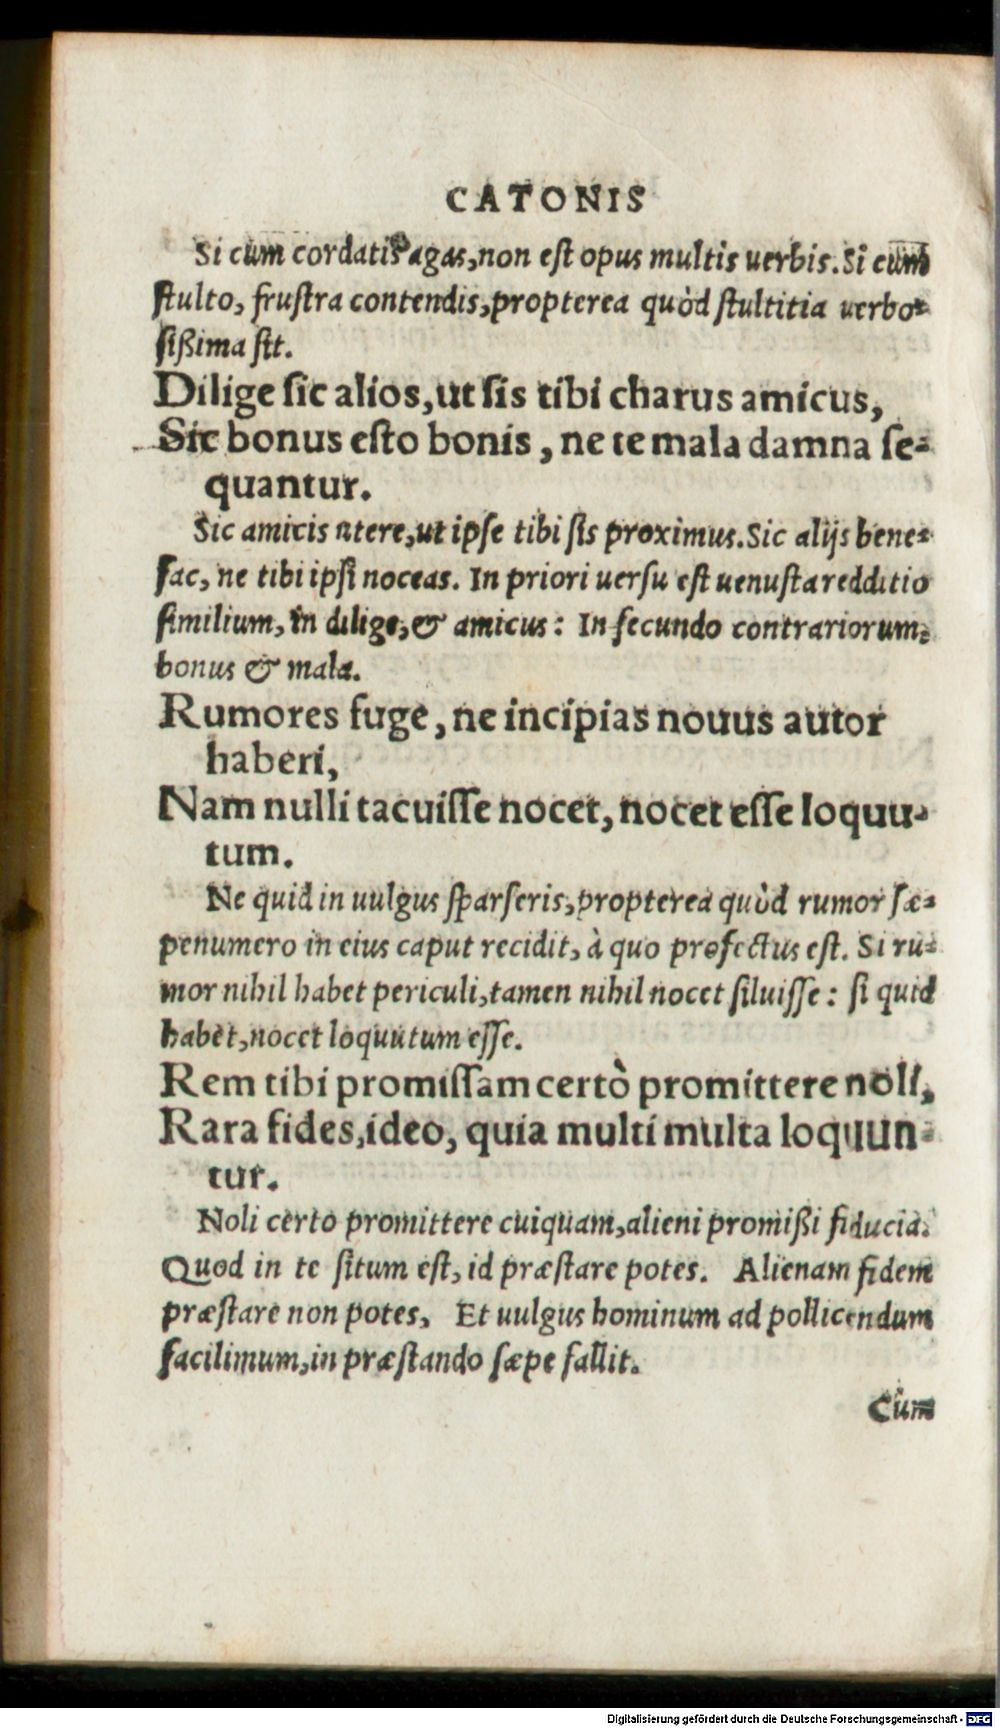 CATONIS
Si cum cordatis agas, non est opus multis uerbis. Si cum
stulto, frustra contendis, propterea quòd stultitia uerbo-
sißima sit.
Dilige sic alios, ut sis tibi charus amicus,
Sic bonus esto bonis, ne te mala damna se-
quantur.
Sic amicis utere, ut ipse tibi sis proximus. Sic alijs bene-
fac, ne tibi ipsi noceas. In priori uersu est uenusta redditio
similium, in dilige, & amicus: In secundo contrariorum,
bonus & mala.
Rumores fuge, ne incipias nouus autor
haberi,
Nam nulli tacuisse nocet, nocet esse loquu-
tum.
Ne quid in uulgus sparseris, propterea quòd rumor sæ-
penumero in eius caput recidit, à quo profectus est. Si ru-
mor nihil habet periculi, tamen nihil nocet siluisse: si quid
habet, nocet loquutum esse.
Rem tibi promissam certò promittere noli,
Rara fides, ideo, quia multi multa loquun-
tur.
Noli certo promittere cuiquam, alieni promißi fiducia.
Quod in te situm est, id præstare potes. Alienam fidem
præstare non potes, Et uulgus hominum ad pollicendum
facilimum, in præstando sæpe fallit.
Cùm
Digitalisierung gefördert durch die Deutsche Forschungsgemeinschaft - DFG